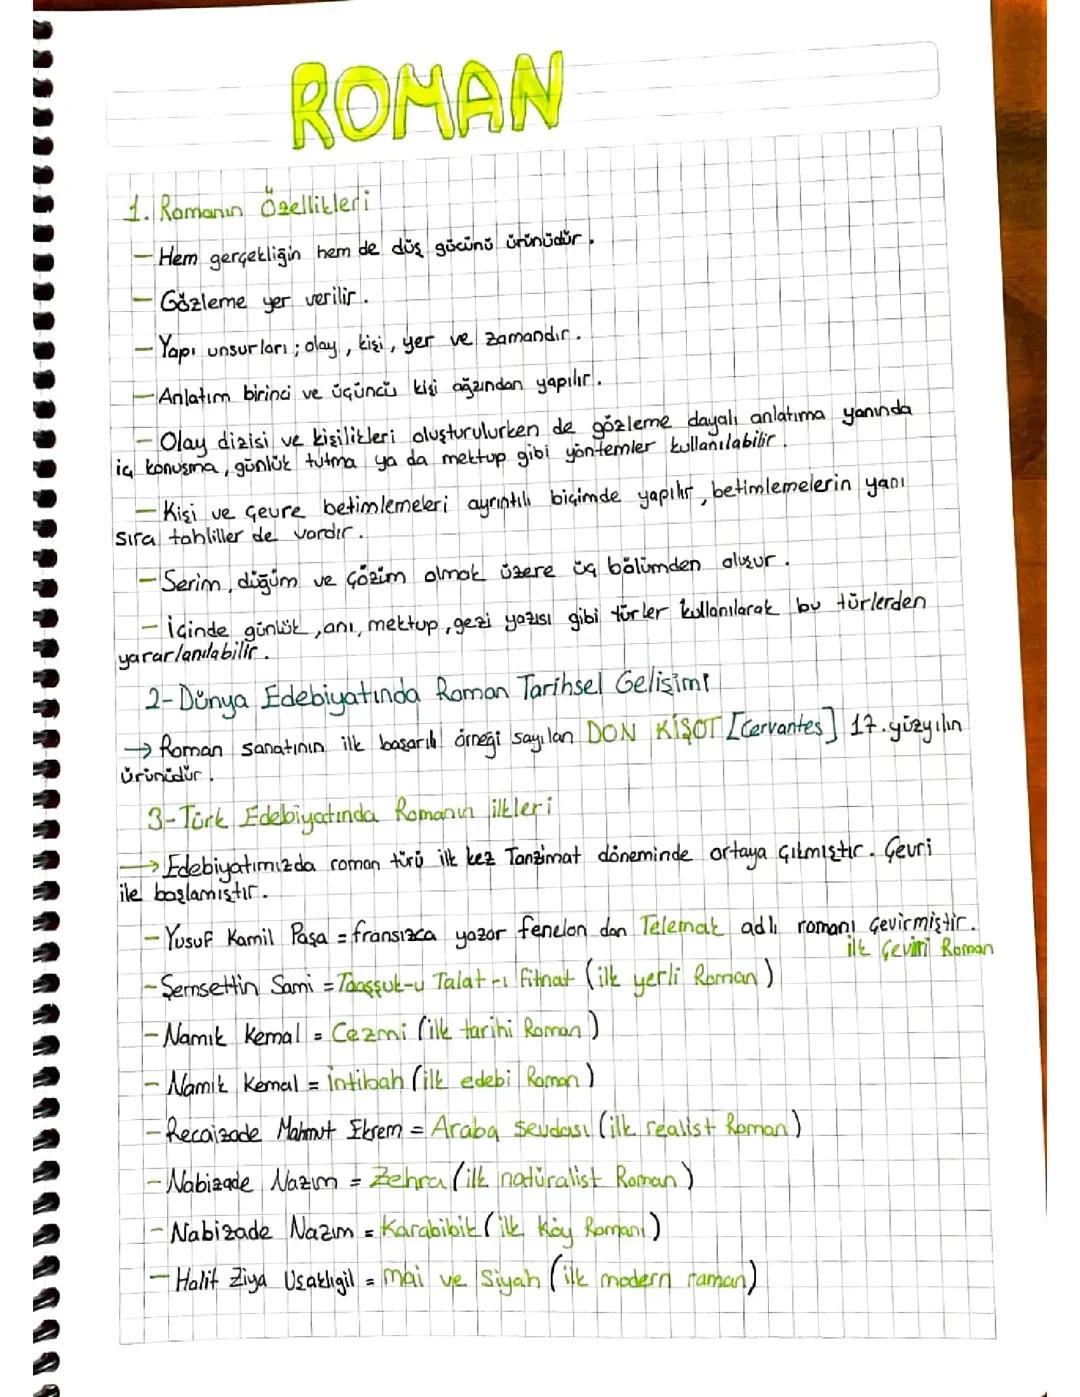 ROMAN
1. Romanın Özellikleri
— Hem gerçekliğin hem de düş gücünü ürünüdür.
— Gözleme yer verilir.
— Yapı unsurları; olay, kişi, yer ve zamandır.
— Anlatım birinci ve üçüncü kişi ağzından yapılır.
— Olay dizisi ve kişilikleri oluşturulurken de gözleme dayalı anlatıma yanında
iç konuşma, günlük tutma ya da mektup gibi yöntemler kullanılabilir.
— Kişi ve çevre betimlemeleri ayrıntılı biçimde yapılır, betimlemelerin yanı
sıra tahliller de vardır.
— Serim, düğüm ve çözim olmak üzere üç bölümden oluşur.
— İçinde günlük, anı, mektup, gezi yazısı gibi türler kullanılarak bu türlerden
yararlanılabilir.
2- Dünya Edebiyatında Roman Tarihsel Gelişimi
→ Roman sanatının ilk başarılı örneği sayılan DON KİŞOT [Cervantes] 17. yüzyılın
ürünüdür.
3- Türk Edebiyatında Romanın ilkleri
→ Edebiyatımızda roman türü ilk kez Tanzimat döneminde ortaya çıkmıştır. Çevri
ile başlamıştır.
— Yusuf Kamil Paşa = fransızca yazar fenelon dan Telemak adlı romanı çevirmiştir.
ilk Çeviri Roman
— Şemsettin Sami = Taaşşuk-u Talat-ı Fitnat (ilk yerli Roman)
— Namık Kemal = Cezmi (ilk tarihi Roman)
— Namık Kemal = intibah (ilk edebi Roman)
— Recaizade Mahmut Ekrem = Araba sevdası (ilk realist Roman)
— Nabizade Nazım = Zehra (ilk natüralist Roman)
— Nabizade Nazım = Karabibik (ilk Köy Romanı)
— Halit Ziya Uşaklıgil = mai ve Siyah (ilk modern raman)